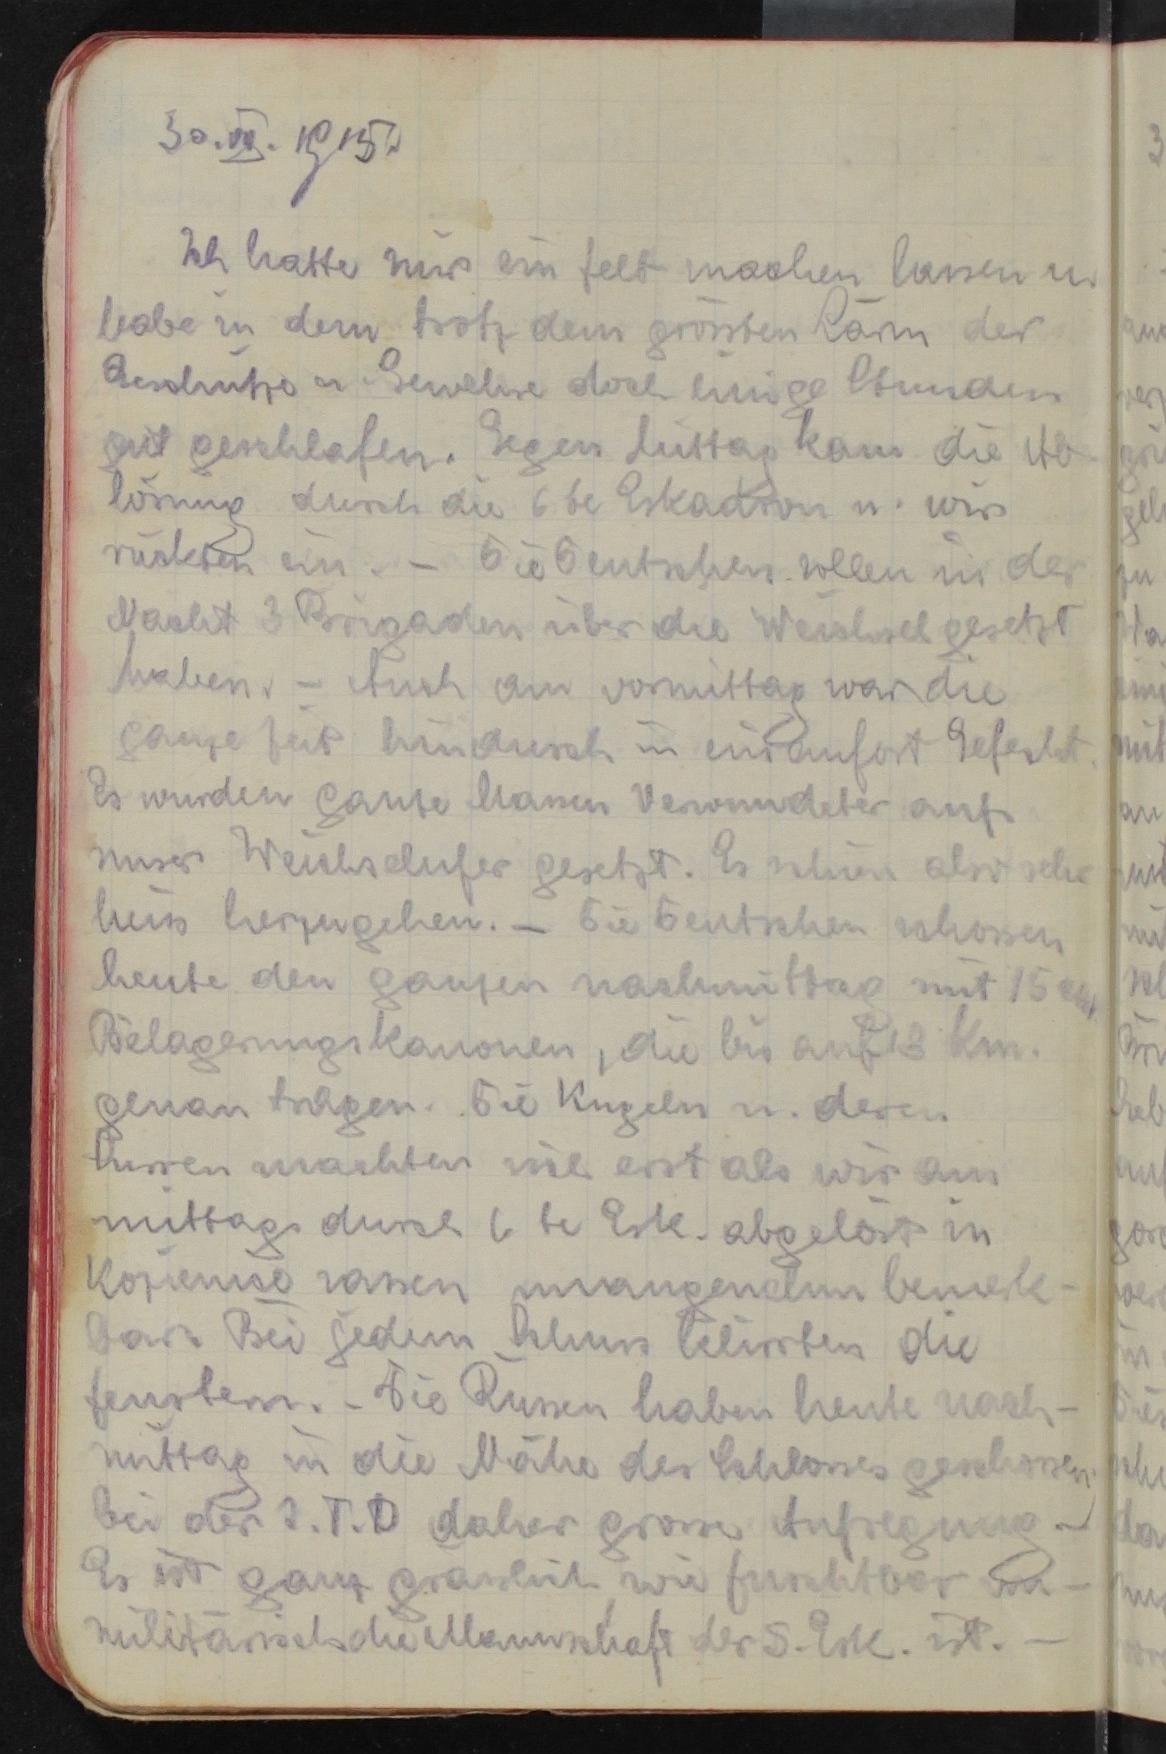 30.VII.1915.
Ich hatte mir ein Zelt machen lassen u.
habe in dem trotz dem grössten Lärm der
Geschütze u. Gewehre doch einige Stunden
gut geschlafen. Gegen Mittag kam die Ab-
lösung durch die 6te Eskadron u. wir
rückten ein. – Die Deutschen sollen in der
Nacht 3 Brigaden über die Weichsel gesetzt
haben. – Auch am vormittag war die
ganze Zeit hindurch in einemfort Gefecht.
Es wurden ganze Massen Verwundeter auf
unser Weichselufer gesetzt. Es schien also sehr
heiss herzugehen. – Die Deutschen schossen
heute den ganzen nachmittag mit 15 cm
Belagerungskanonen, die bis auf 18 Km.
genau tragen. Die Kugeln u. deren
Sussen machten sich erst als wir am
mittags durch 6te Esk. abgelöst in
Kozienice sassen unangenehm bemerk-
bar. Bei jedem Schuss klirrten die
Fenstern. – Die Russen haben heute nach-
mittag in die Nähe des Schlosses geschossen,
bei der I.T.D daher grosse Aufregung –
Es ist ganz grässlich, wie furchtbar un-
militärisch die Mannschaft der 5. Esk. ist. –